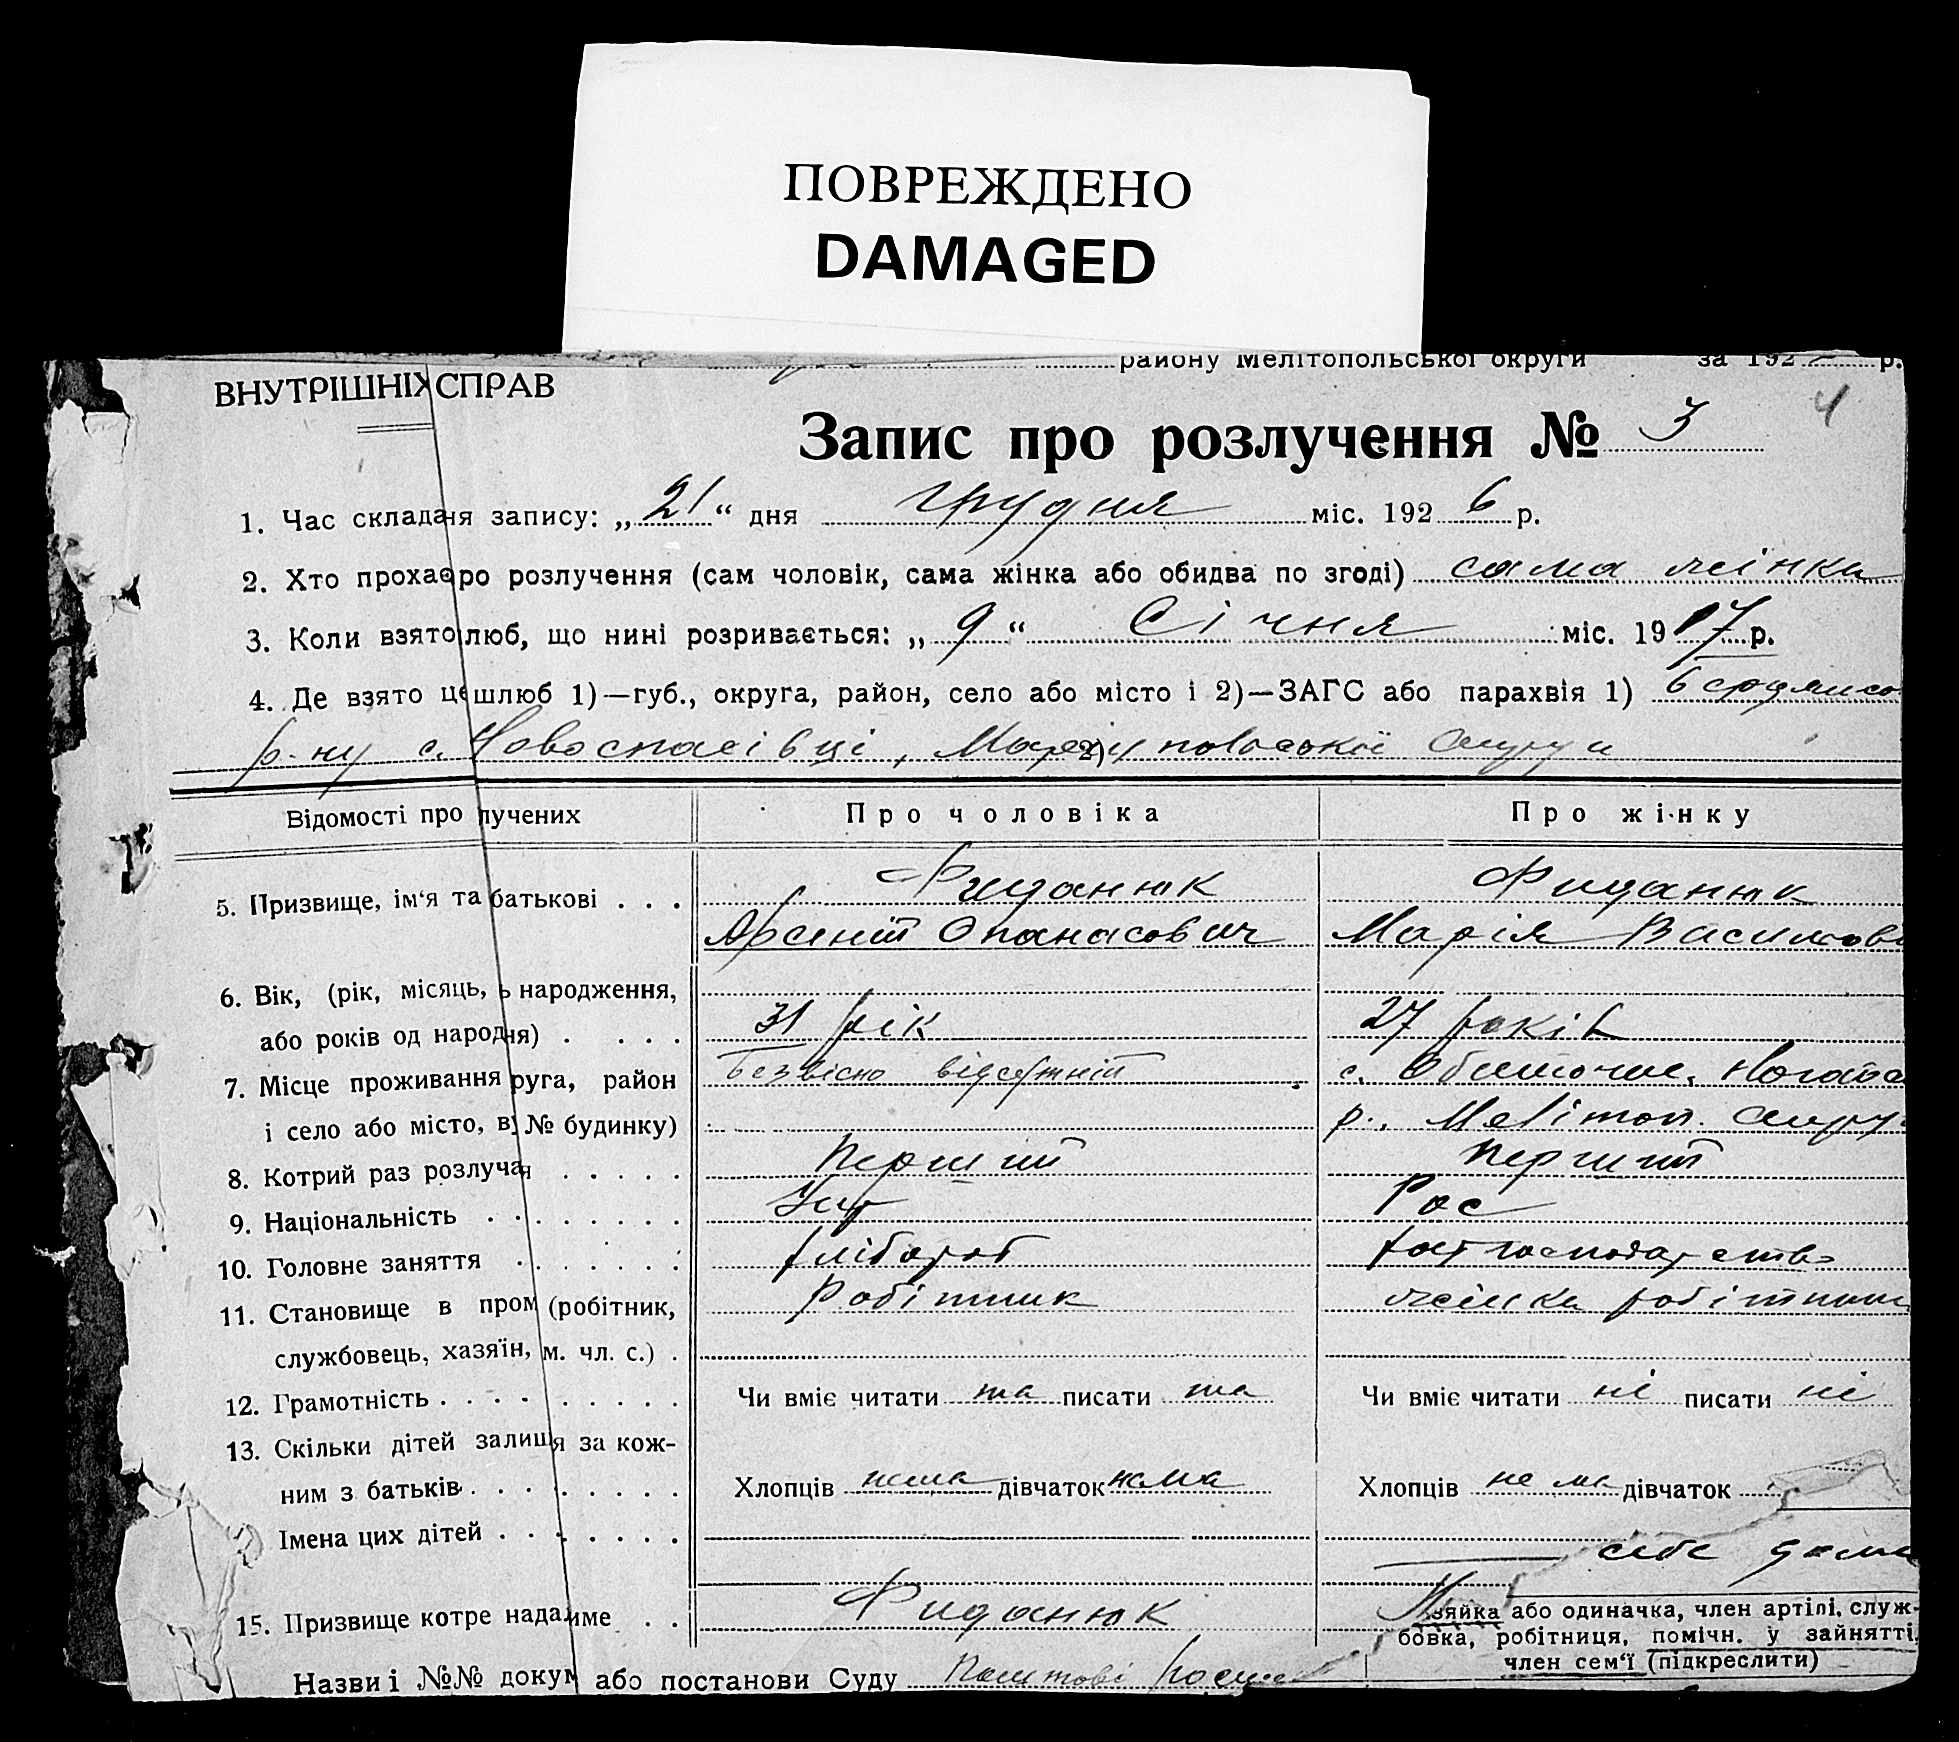 ПОВРЕЖДЕНО
DAMAGED
району Мелітопольської округи за 192 р.
ВНУТРІШНІХ СПРАВ
4
Запис про розлучення № 3
1. Час складаня запису: „21“ дня грудня міс. 1926 р.
2. Хто прохає ро розлучення (сам чоловік, сама жінка або обидва по згоді) сама жінка
3. Коли взято люб, що нині розривається: „9“ Січня міс. 1917 р.
4. Де взято це шлюб 1)—губ., округа, район, село або місто і 2)—ЗАГС або парахвія 1)
р-ну с. Новоспасівці, Маріупольської Округи 2)
Відомості про лучених Про чоловіка Про жінку
5. Призвище, ім'я та батькові . . . Фиданюк Фиданюк
Арсеній Опанасович Марія Васильов
6. Вік, (рік, місяць, ь народження,
або років од народ ня) . . . . 31 рік 27 років
7. Місце проживання руга, район безвісно відсутній с. Обиточне, Ногайс
і село або місто, в № будинку) р., Мелітоп. Округ
8. Котрий раз розлуча . . . . . Перший Перший
9. Національність . . . . . . . Укр Рос
10. Головне заняття . . . . . . . хлібороб господарство
11. Становище в пром (робітник, Робітник жінка робітника
службовець, хазяїн, м. чл. с.) .
12. Грамотність . . . . . . . . . Чи вміє читати та писати та Чи вміє читати ні писати ні
13. Скільки дітей залиш я за кож-
ним з батьків . . . . . . . . Хлопців нема дівчаток нема Хлопців не ма дівчаток
Імена цих дітей . . . . . . .
себе
15. Призвище котре нада име . . Фиданюк
зяйка або одиначка, член артілі, служ-
бовка, робітниця, помічн. у зайнятті,
член сем'ї (підкреслити)
Назви і №№ докум або постанови Суду